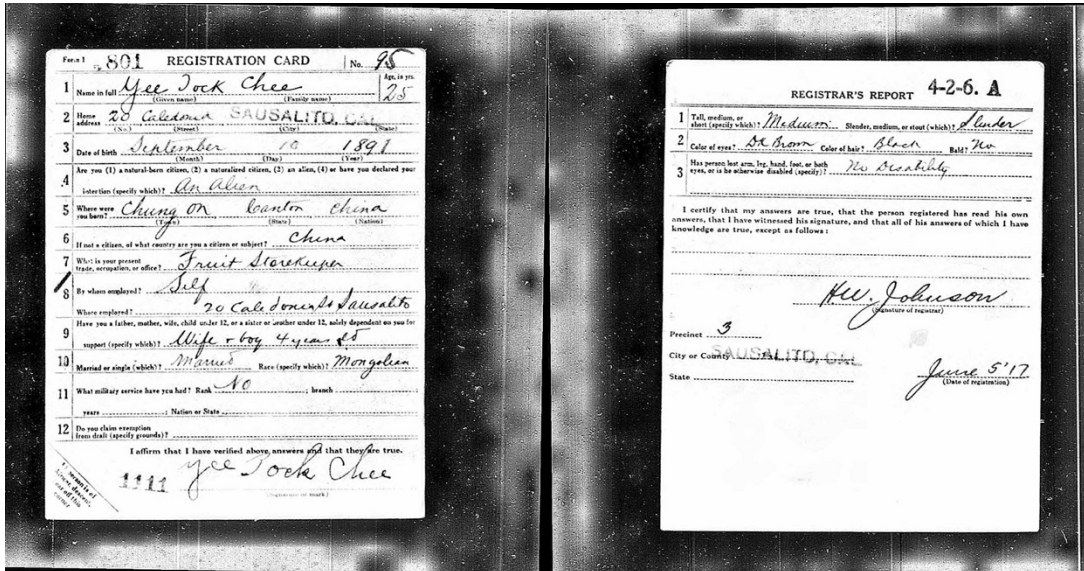 Form 1 801 REGISTRATION CARD No. 95
1 Name in full Yee Tock Chee Age, in yrs. 25
(Given name) (Family name)
2 Home address 20 Caledonia SAUSALITO, CAL
(No.) (Street) (City) (State)
3 Date of birth September 10 1891
(Month) (Day) (Year)
4 Are you (1) a natural-born citizen, (2) a naturalized citizen, (3) an alien, (4) or have you declared your
intention (specify which)? An Alien
5 Where were you born? Chung On Canton China
(Town) (State) (Nation)
6 If not a citizen, of what country are you a citizen or subject? China
7 What is your present trade, occupation, or office? Fruit Storekeeper
8 By whom employed? Self
Where employed? 20 Caledonia St Sausalito
9 Have you a father, mother, wife, child under 12, or a sister or brother under 12, solely dependent on you for
support (specify which)? Wife + boy 4 years
10 Married or single (which)? Married Race (specify which)? Mongolian
11 What military service have you had? Rank No ; branch
years ; Nation or State
12 Do you claim exemption
from draft (specify grounds)?
I affirm that I have verified above answers and that they are true.
1111 Yee Tock Chee
(Signature or mark)
If person is of
African descent,
tear off this
corner
REGISTRAR'S REPORT 4-2-6. A
1 Tall, medium, or short (specify which)? Medium Slender, medium, or stout (which)? Slender
2 Color of eyes? Dk Brown Color of hair? Black Bald? No
3 Has person lost arm, leg, hand, foot, or both
eyes, or is he otherwise disabled (specify)? No Disability
I certify that my answers are true, that the person registered has read his own
answers, that I have witnessed his signature, and that all of his answers of which I have
knowledge are true, except as follows:
H.W. Johnson
(Signature of registrar)
Precinct 3
City or County SAUSALITO, CAL
State June 5 '17
(Date of registration)